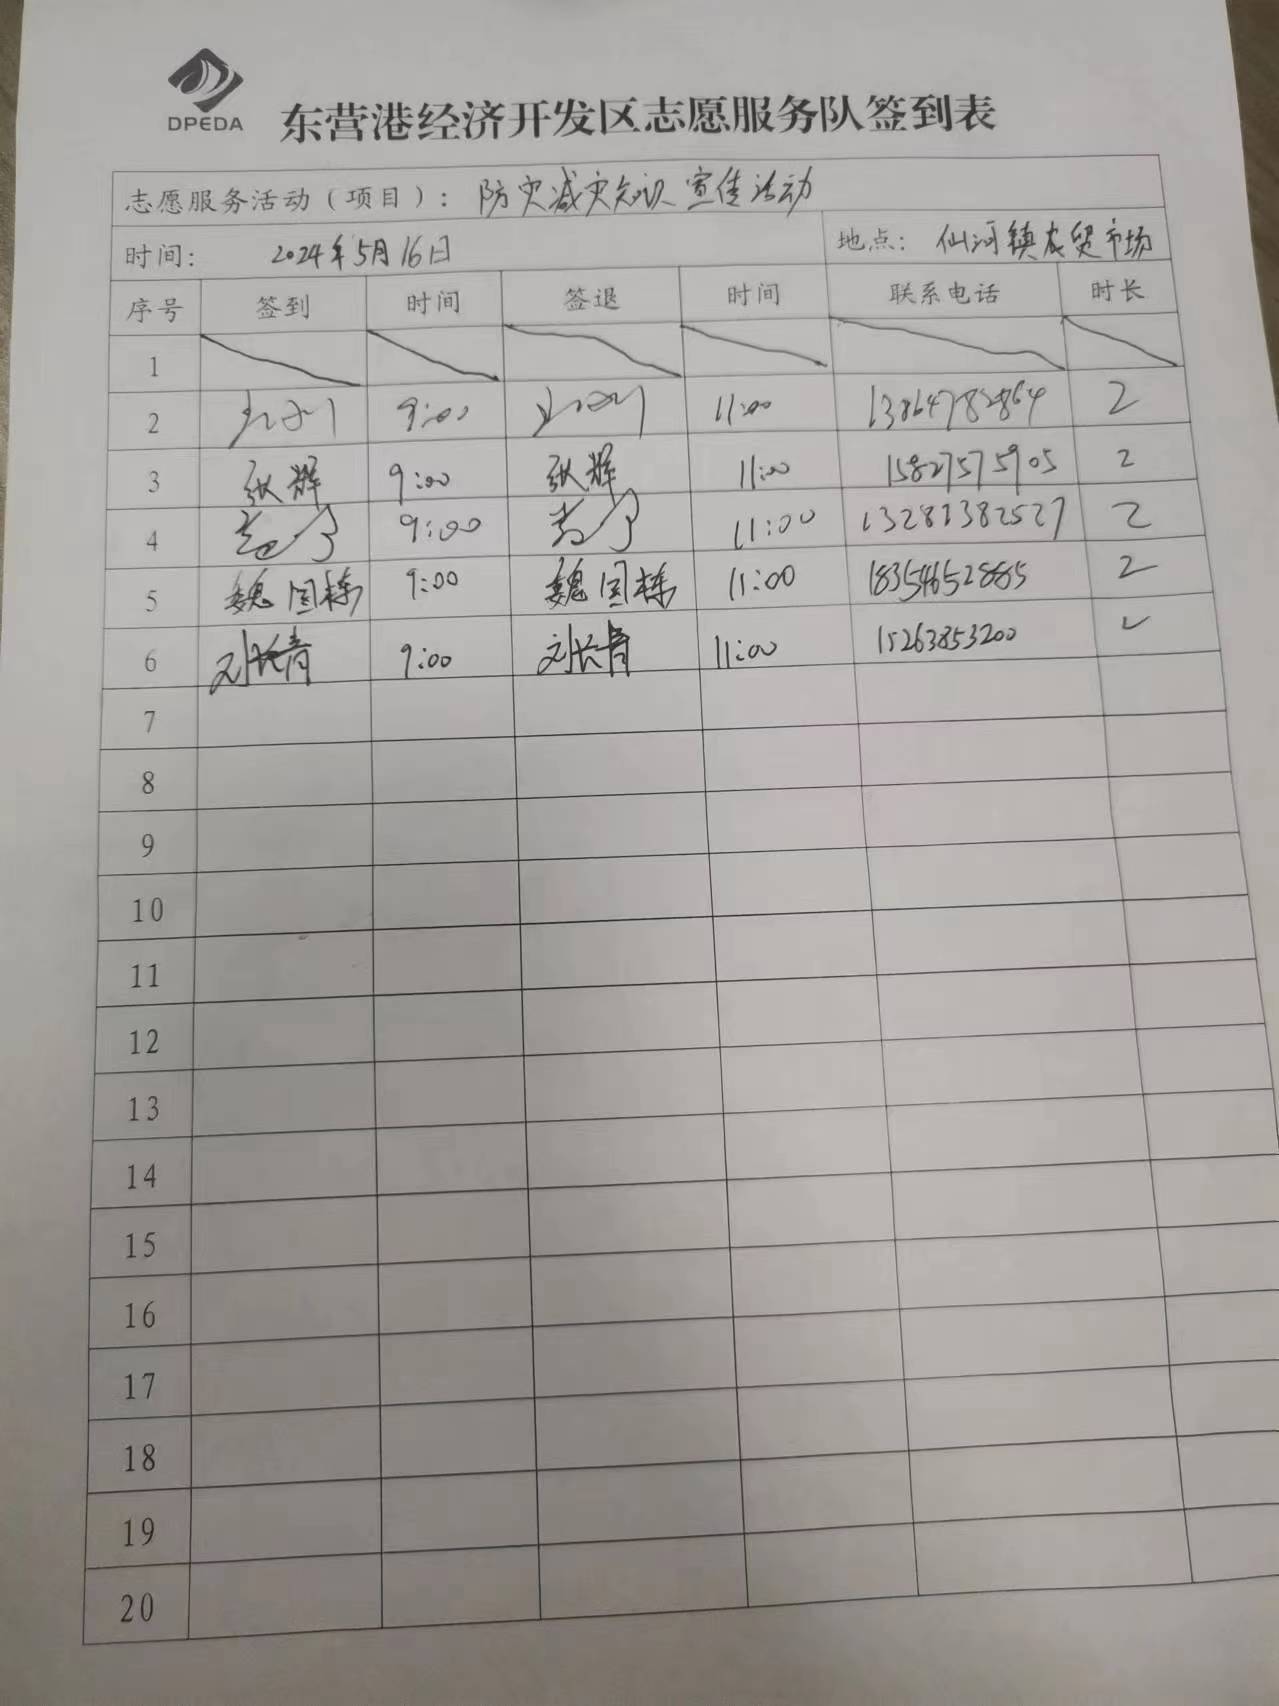 DPEDA
东营港经济开发区志愿服务队签到表
志愿服务活动（项目）：防灾减灾知识宣传活动
时间： 2024年5月16日 地点：仙河镇农贸市场
序号 签到 时间 签退 时间 联系电话 时长
1
2 9:00 11:00 13864782864 2
3 张辉 9:00 张辉 11:00 15827575905 2
4 9:00 11:00 13281382527 2
5 魏国栋 9:00 魏国栋 11:00 18354652885 2
6 刘长青 9:00 刘长青 11:00 15263853200 2
7
8
9
10
11
12
13
14
15
16
17
18
19
20